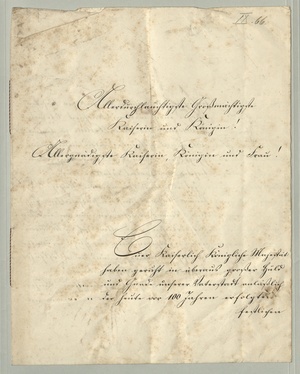 66
Allerdurchlauchtigste Großmächtigste
Kaiserin und Königin!
Allergnädigste Kaiserin Königin und Frau!
Euer Kaiserlich Königliche Majestät
haben geruht in überaus großer Huld
und Gnade unserer Vaterstadt anläßlich
der heute vor 100 Jahren erfolgten
festlichen